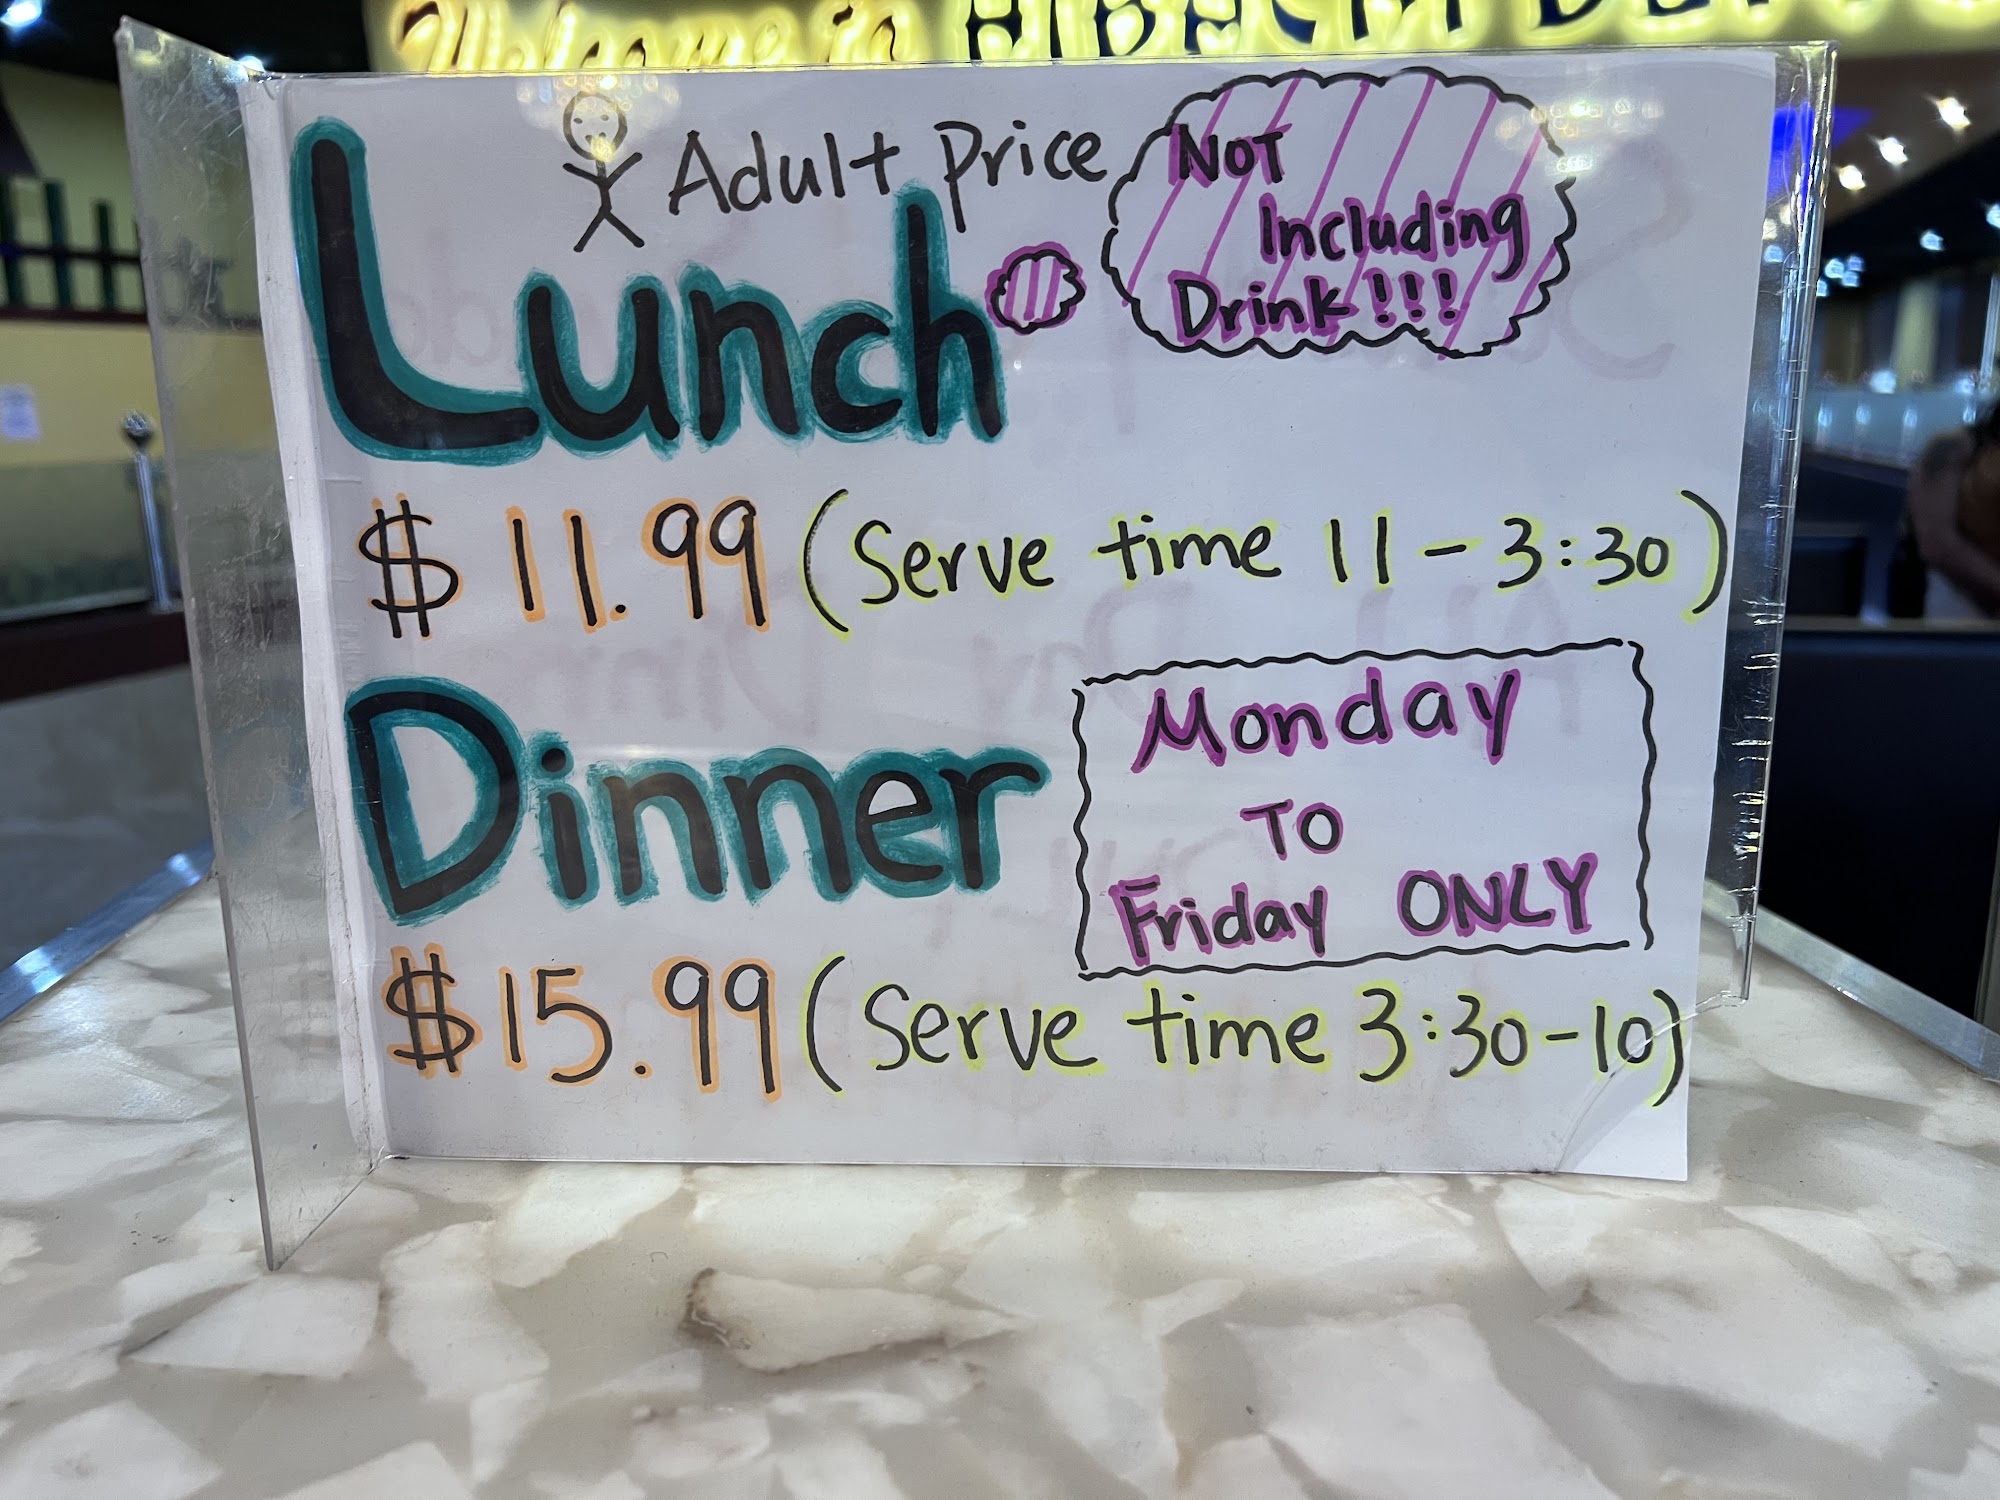 Welcome to
Adult price
NOT
Including
Drink!!!
Lunch
$11.99 (Serve time 11-3:30)
Dinner
Monday
TO
Friday ONLY
$15.99 (Serve time 3:30-10)